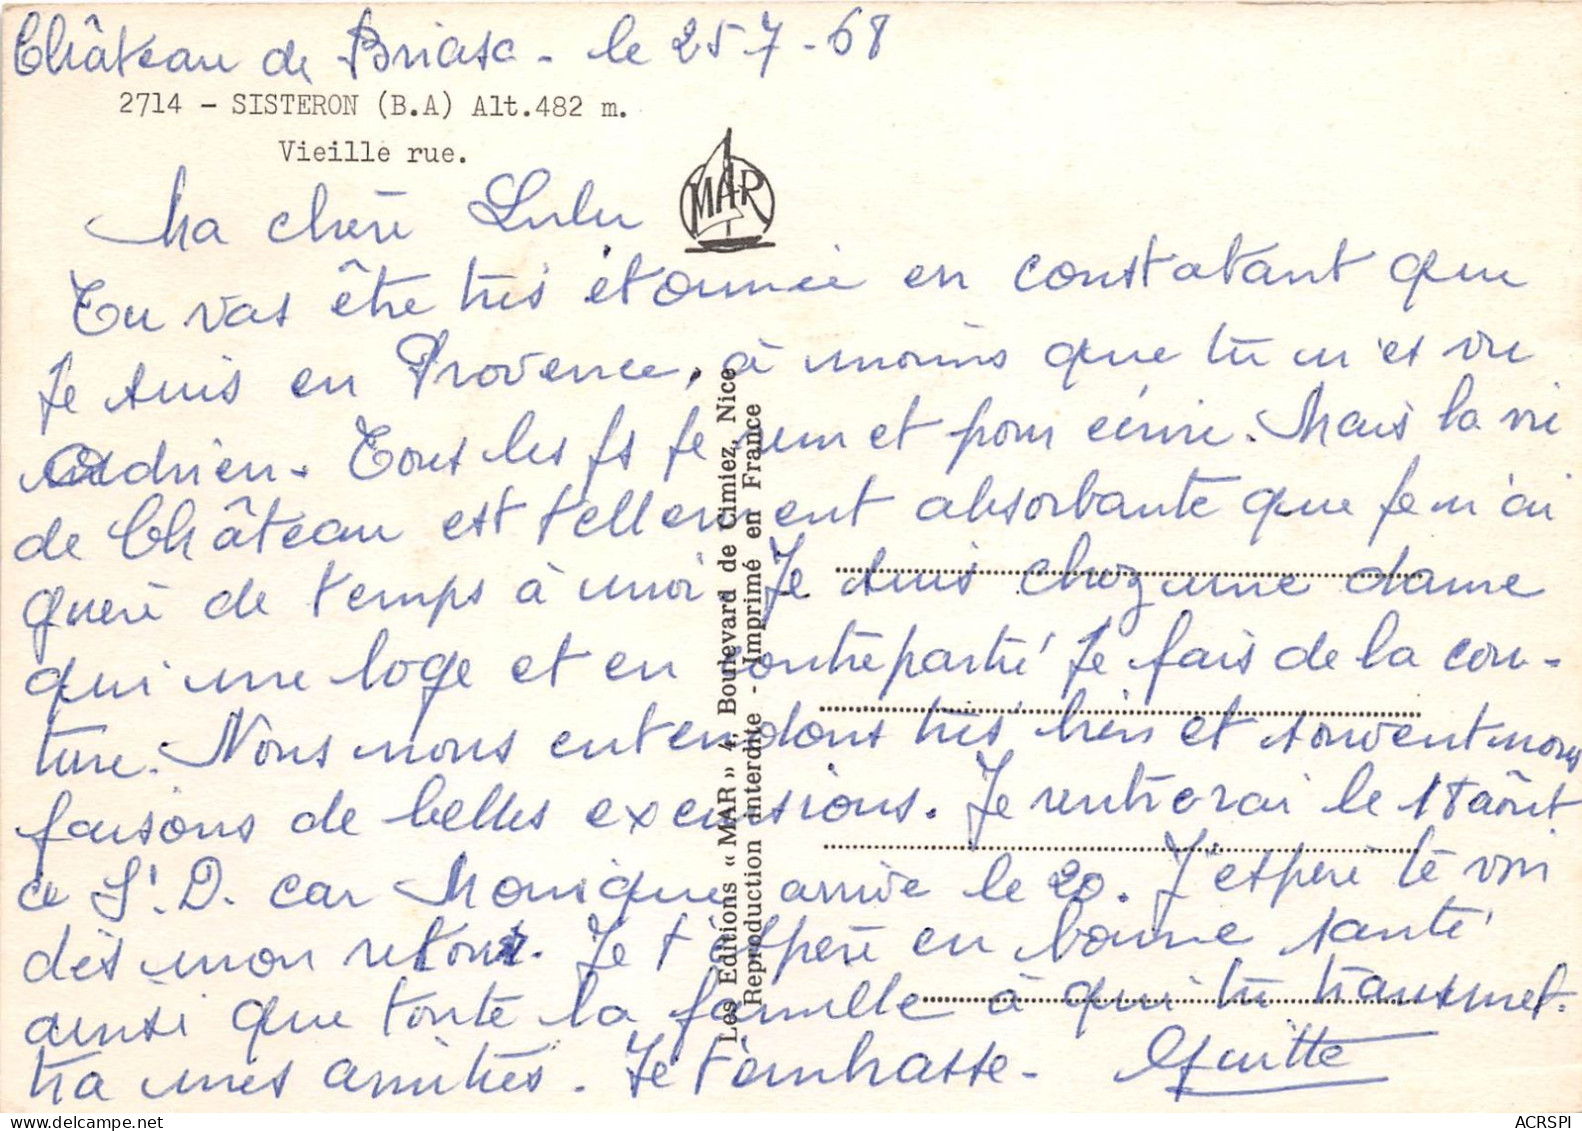 Château de Briasc - le 25-7-68
2714 - SISTERON (B.A) Alt.482 m.
Vieille rue.
MAR
Ma chère Lulu
Tu vas être très étonnée en constatant que
je suis en Provence, à moins que tu n'es vu
Adrien. Tous les js je remet pour écrire. Mais la vie
de Château est tellement absorbante que je n'ai
guère de temps à moi. Je suis chez une dame
qui me loge et en contrepartie je fais de la cou-
ture. Nous nous entendons très bien et souvent nous
faisons de belles excursions. Je rentrerai le 18 août
à St. D. car Monique arrive le 20. J'espère te voir
dès mon retour. Je t'espère en bonne santé
ainsi que toute la famille à qui tu transmet-
tra mes amitiés. Je t'embrasse. Guitte
Les Editions « MAR » 4, Boulevard de Cimiez, Nice
Reproduction interdite - Imprimé en France
ACRSPI